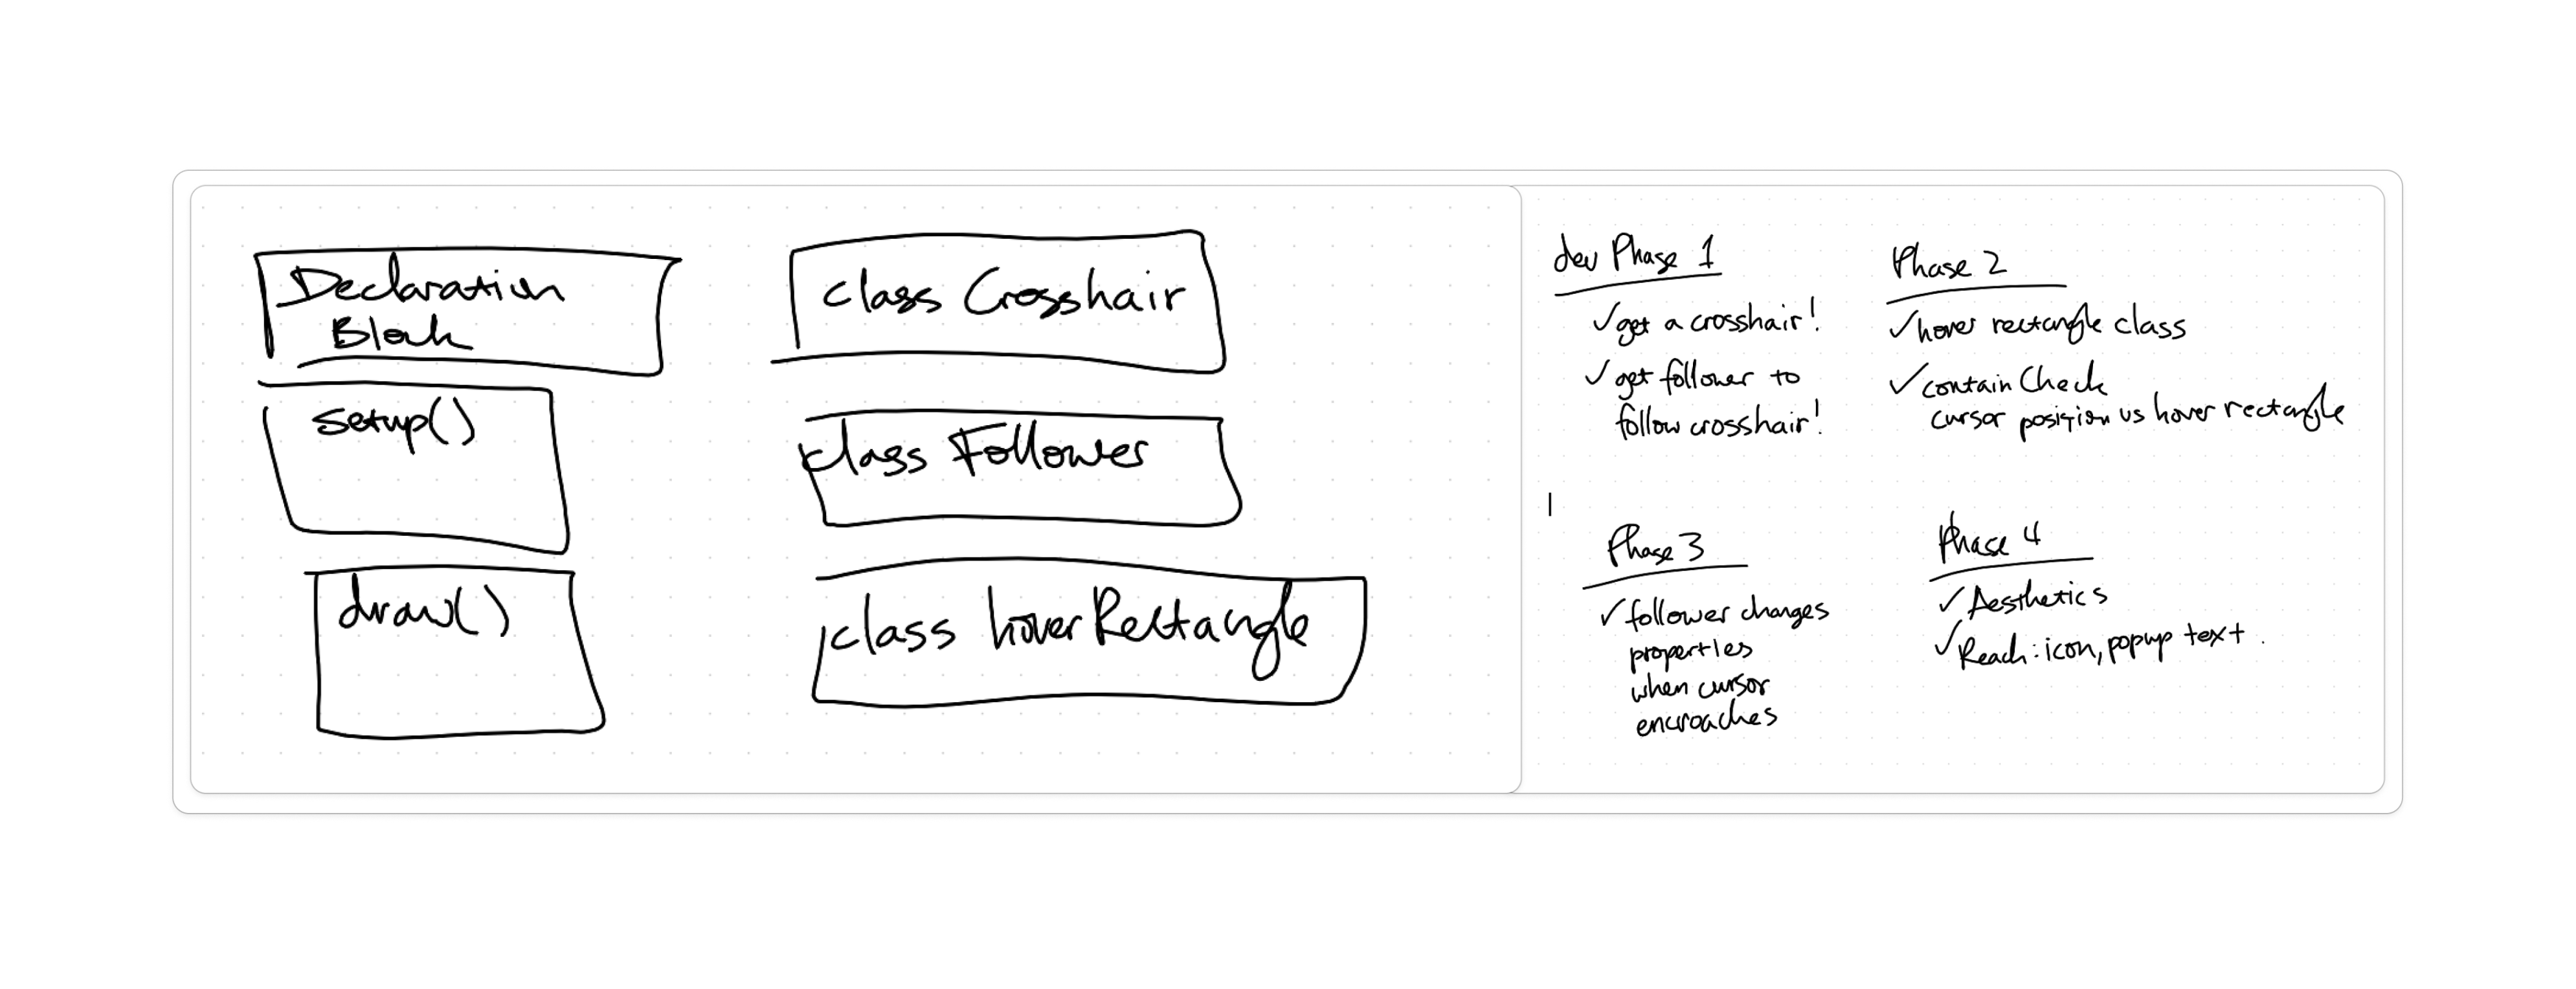 Declaration
Block
setup()
draw()
class Crosshair
class Follower
class hoverRectangle
dev Phase 1
✓get a crosshair!
✓get follower to
follow crosshair!
Phase 2
✓hover rectangle class
✓contain Check
cursor position vs hover rectangle
Phase 3
✓follower changes
properties
when cursor
encroaches
Phase 4
✓Aesthetics
✓Reach: icon, popup text.